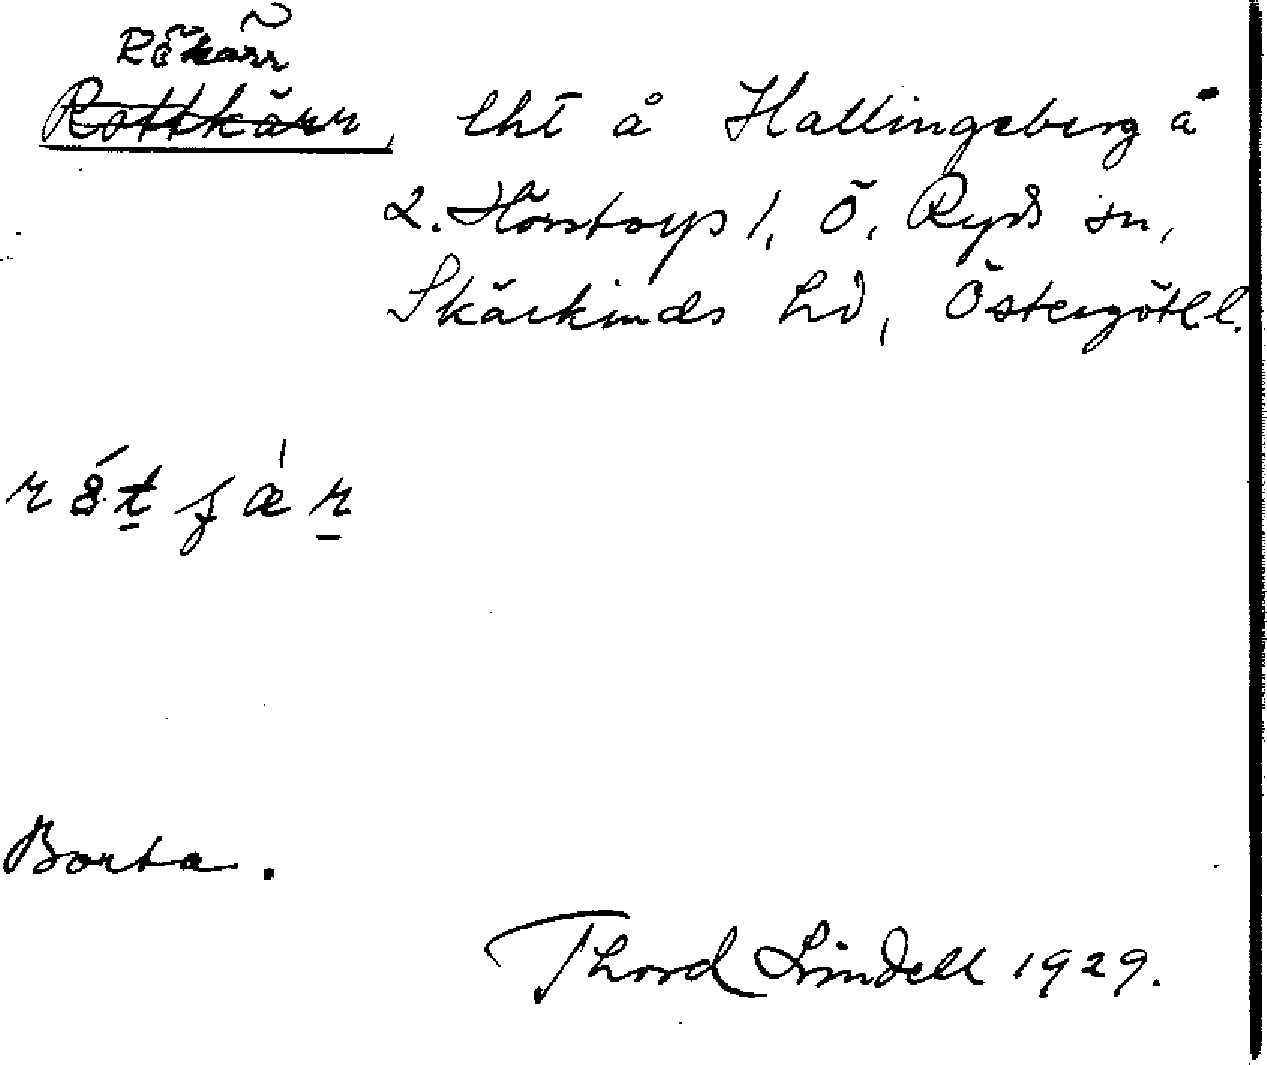 Rökärr
Rottkärr, lht å Hallingeberg å
2. Hörstorp 1, Ö. Ryds sn,
Skärkinds hd, Östergötl. l.
Borta.
Thord Lindell 1929.